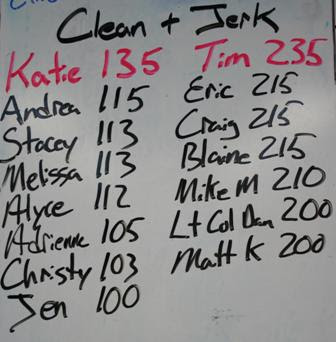 Clean + Jerk
Katie 135 Tim 235
Andrea 115 Eric 215
Stacey 113 Craig 215
Melissa 113 Blaine 215
Alyce 112 Mike M 210
Adrienne 105 Lt Col Dan 200
Christy 103 Matt K 200
Jen 100